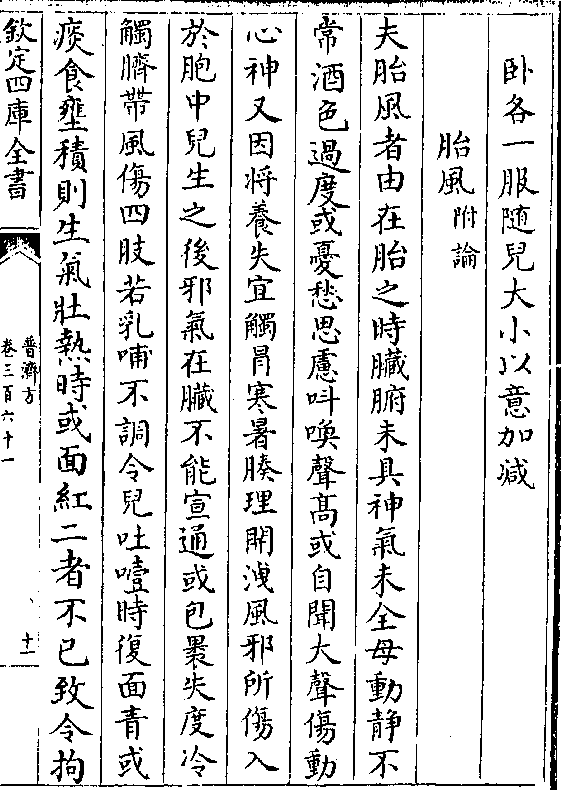 卧各一服随兒大小以意加減
胎風附論
夫胎風者由在胎之時臟腑未具神氣未全母動靜不
常酒色過度或憂愁思慮呌喚聲髙或自聞大聲傷動
心神又因将養失宜觸冒寒暑腠理開洩風邪所傷入
於胞中兒生之後邪氣在臟不能宣通或包裹失度冷
觸臍帶風傷四肢若乳哺不調令兒吐噎時復面青或
痰食壅積則生氣壯熱時或面紅二者不已致令拘
欽定四庫全書
普濟方
卷三百六十一
十一